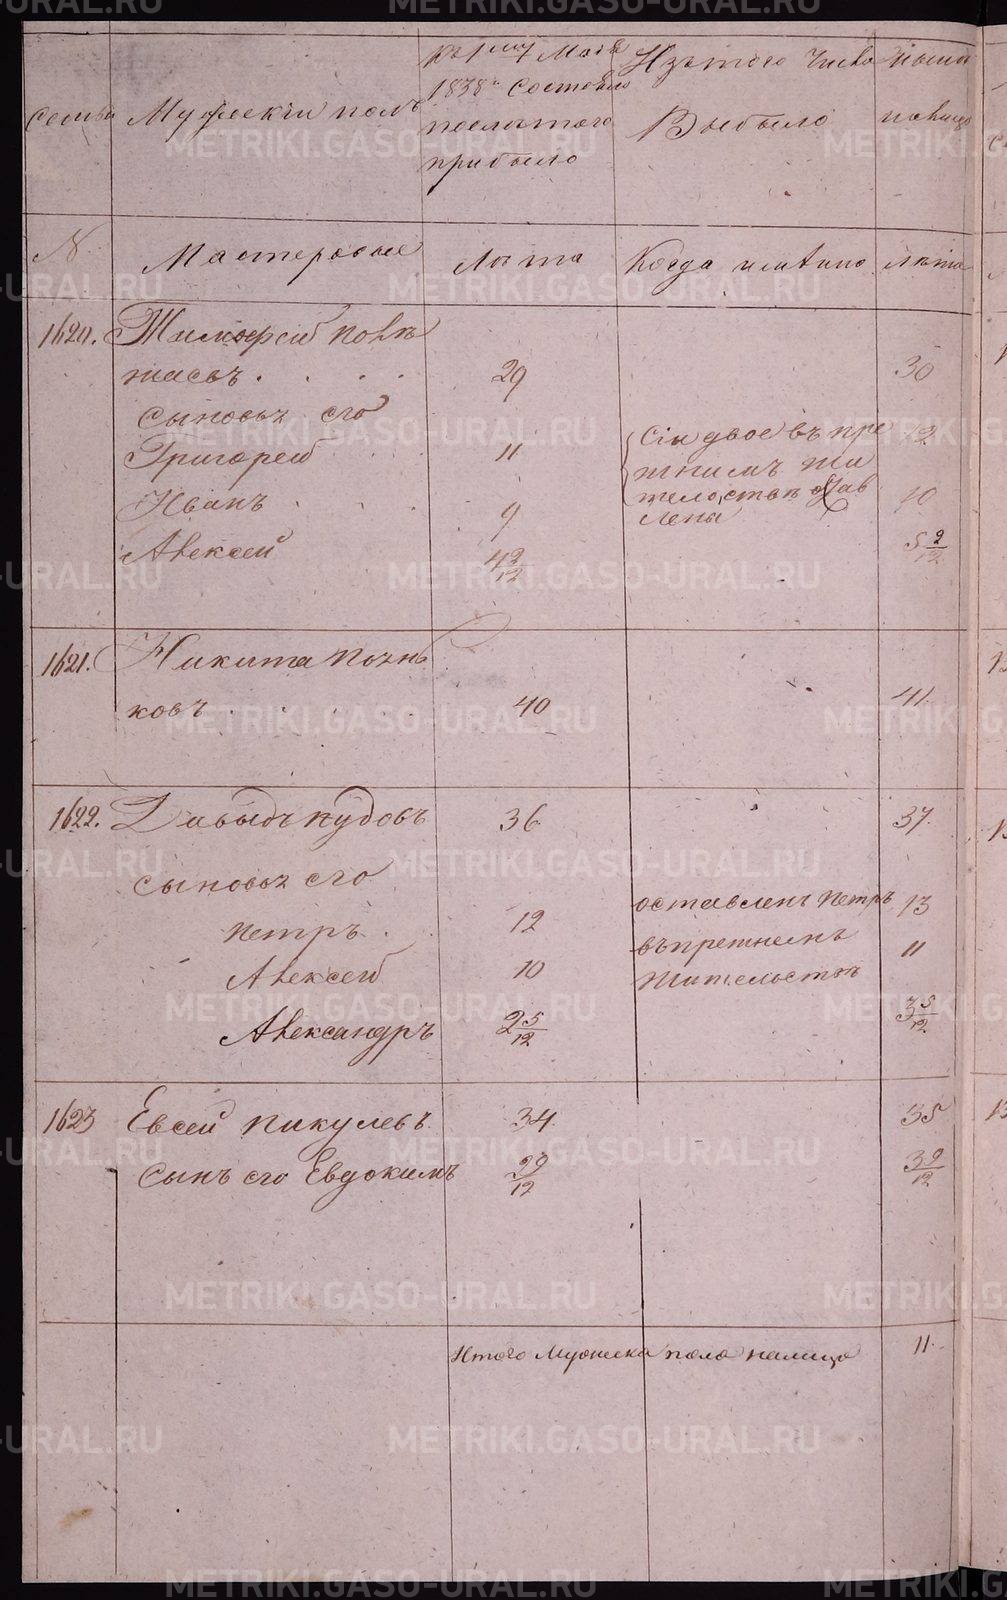 Семьи
Мужескій полъ
Къ 1му Мая
1838го состояло
послѣ того
прибыло
Изъ того числа
Выбыло
Ныне
на лицо
№
Мастеровые
Лѣта
Когда имянно
лѣта
1620. Тимофей
29 30
Сыновья его
Григорей 11 12
Сіи двое въ пре
жнимъ жи
тельствѣ остав
лены
Иванъ 9 10
Алексей 4 2/12 5 2/12
1621. Никита Почин
ковъ 40 41.
1622. Давыдъ Кудовъ 36 37.
Сыновья его
Петръ 12 13
оставленъ Петръ
въ прежнемъ
жительствѣ
Алексей 10 11
Александръ 2 5/12 3 5/12
1623 Евсей Пикулевъ 34. 35
Сынъ его Евдокимъ 2 9/12 3 9/12
Итого Мужеска пола на лицо 11.
METRIKI.GASO-URAL.RU